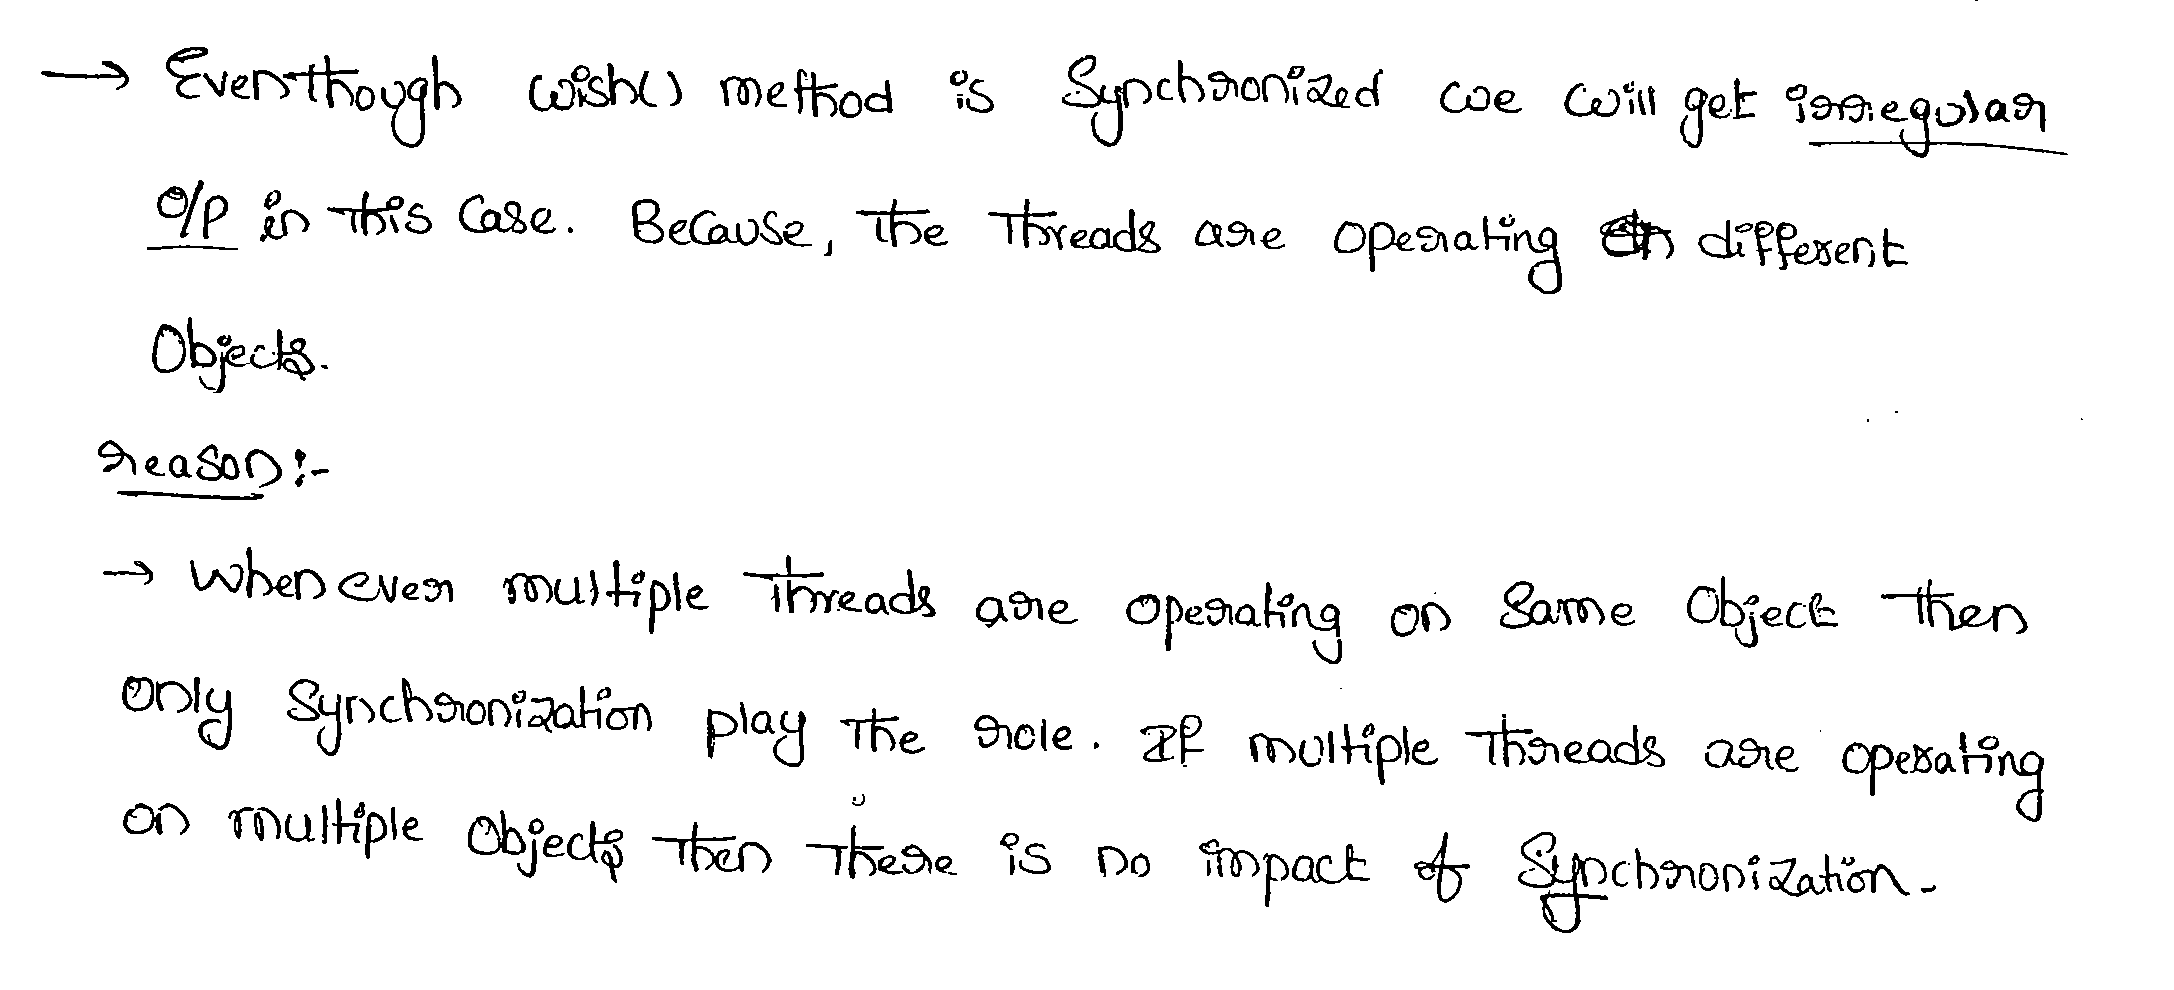 → Eventhough wish() method is Synchronized we will get irregular
O/P in this Case. Because, the Threads are operating on different
Objects.
reason:-
→ Whenever multiple Threads are operating on Same Object Then
only Synchronization play the role. If multiple Threads are operating
on multiple Objects then there is no impact of Synchronization.